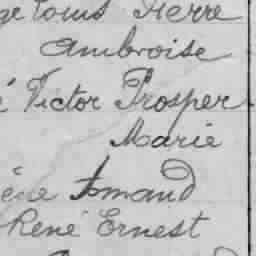 Louis Pierre
Ambroise
Victor Prosper
Marie
Armand
René Ernest